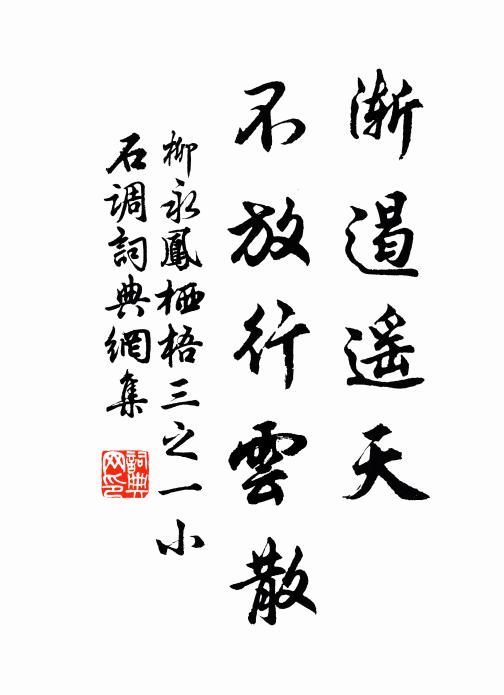 渐遏遥天
不放行雲散
柳永鳳栖梧三之一小
石调詞典網集
詞典网印